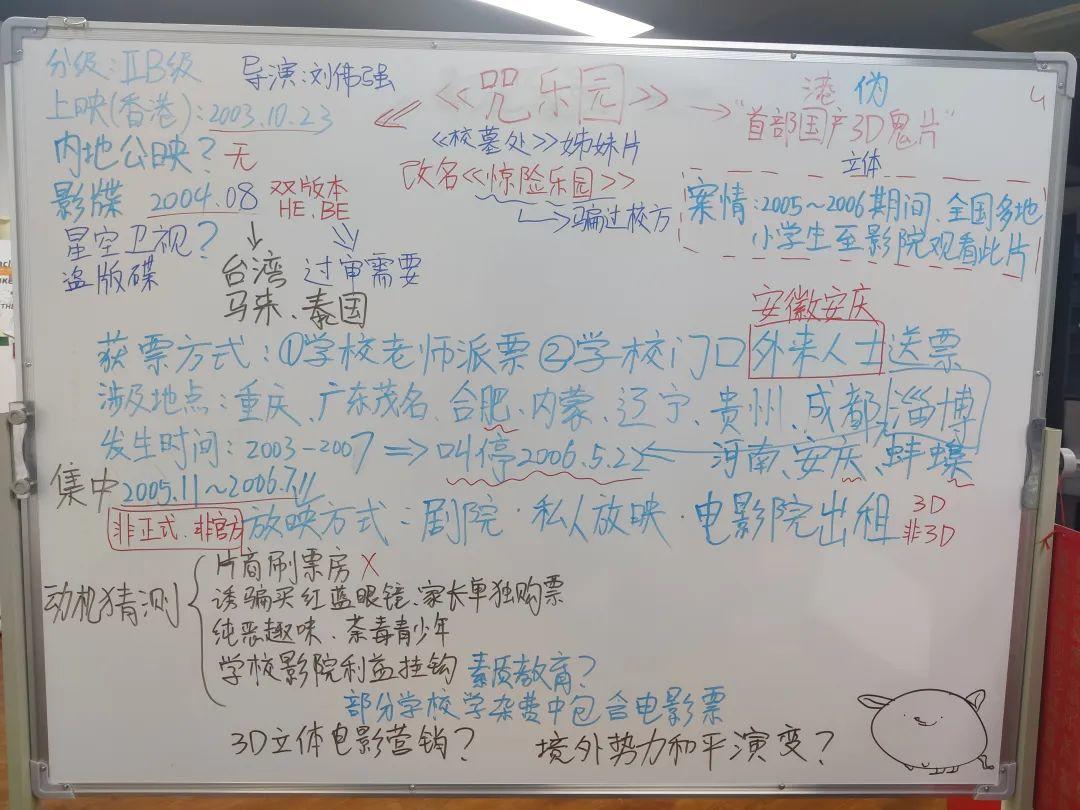 分级:ⅡB级
导演:刘伟强
上映(香港):2003.10.23
内地公映?无
影牒 2004.08 双版本
HE、BE
星空卫视?
盗版碟
台湾
马来、泰国
过审需要
《咒乐园》
《校墓处》姊妹片
改名《惊险乐园》
骗过校方
港 伪
"首部国产3D鬼片"
立体
案情:2005~2006期间、全国多地
小学生至影院观看此片
安徽安庆
获票方式:①学校老师派票 ②学校门口外来人士送票
涉及地点:重庆、广东茂名、合肥、内蒙、辽宁、贵州、成都、淄博
河南、安庆、蚌蠓
发生时间:2003-2007 ⇒ 叫停2006.5.22
集中 2005.11~2006.7.11
非正式、非官方
放映方式:剧院·私人放映·电影院出租 3D
非3D
动机猜测
片商刷票房 X
诱骗买红蓝眼镜、家长单独购票
纯恶趣味、荼毒青少年
学校影院利益挂钩 素质教育?
部分学校学杂费中包含电影票
3D立体电影营销? 境外势力和平演变?